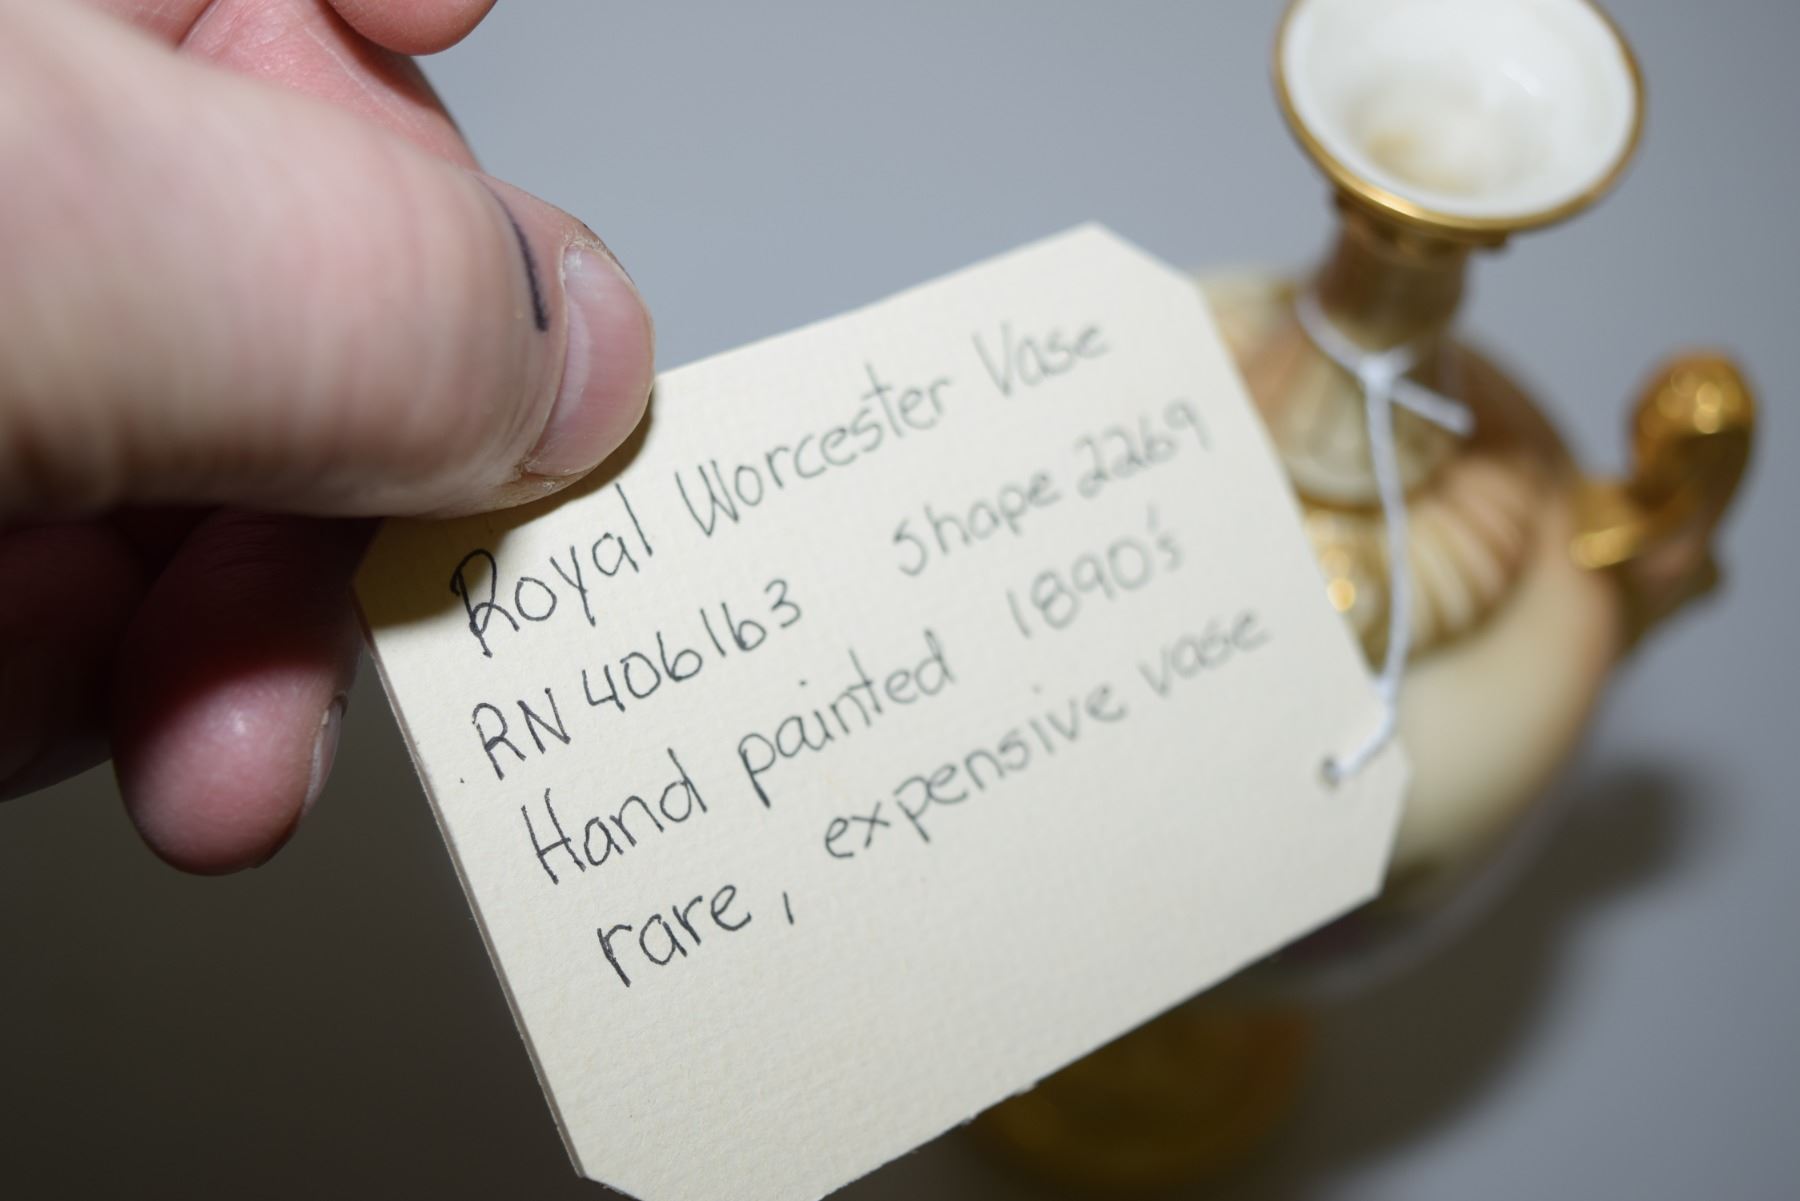 Royal Worcester Vase
RN 406163 Shape 2269
Hand painted 1890's
rare, expensive vase